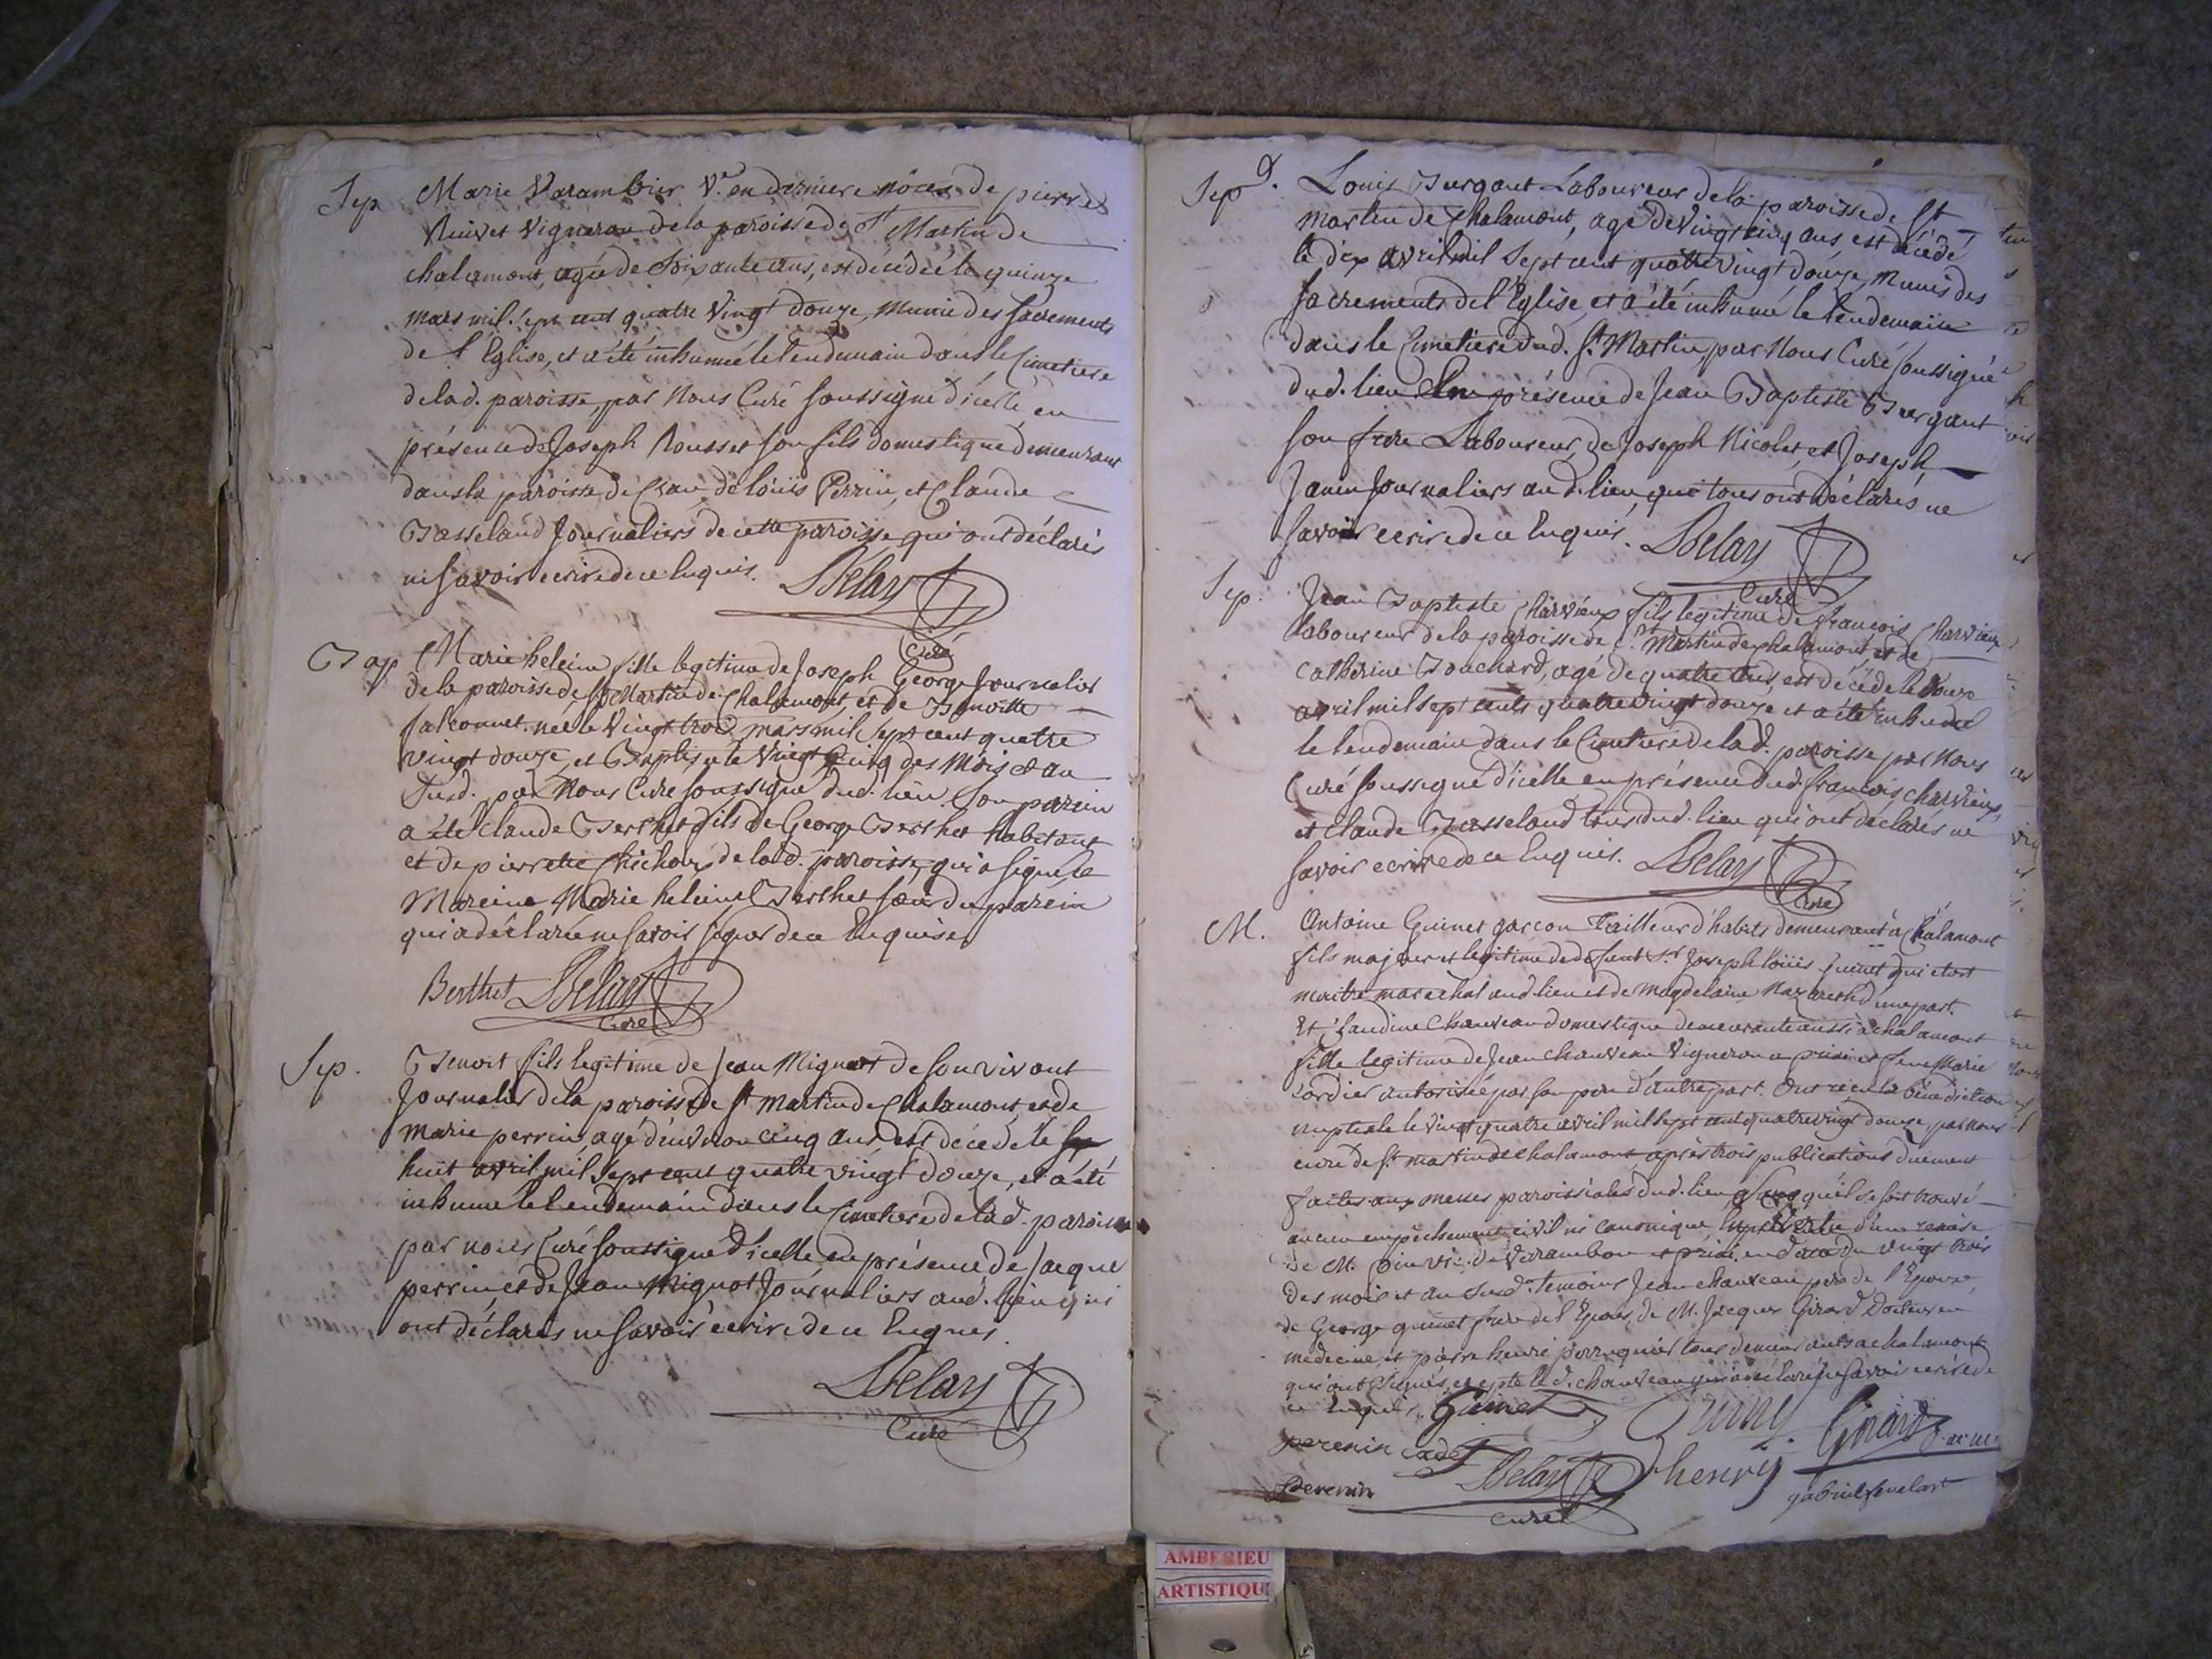 Sep. Marie Varambier Ve. en derniere nôces de pierre
vigneron de la paroisse de St Martin de
chalamont, agée de Soixante ans, est décédée le quinze
mars mil Sept cent quatre vingt douze, munie des Sacrements
de l'Eglise, et a été inhumée le lendemain dans le Cimetiere
de lad. paroisse, par Nous Curé Soussigné d'icelle en
présence de Joseph Rousset son fils domestique demeurant
dans la paroisse de Cran de loüis Perrin, et Claude
Basseland Journaliers de cette paroisse qui ont déclarés
ne Savoir ecrire de ce Enquis. Delay
Curé
Bap Marie heleine fille legitime de Joseph George Journalier
de la paroisse de St Martin de Chalamont, et de Benoitte
falconnet. née le Vingt trois mars mil Sept cent quatre
vingt douze, et Baptisée le Vingt Cinq des Mois et an
Susd. par Nous Curé Soussigné dud. lieu. Son parein
a été Claude Berthet fils de George Berthet habitant
et de pierrette de lad. paroisse, qui a Signé, Sa
Mareine Marie heleine Berthet Sœur du parein
qui a déclarée ne Savoir Signer de ce Enquise
Berthet Delay
Curé
Sep. Benoit fils legitime de Jean Mignot de Son vivant
Journalier de la paroisse de St Martin de Chalamont, et de
Marie perrin, agé d'environ cinq ans est décedé le
huit avril mil Sept cent quatre vingt douze, et a été
inhumé le lendemain dans le Cimetiere de lad. paroisse
par nous Curé Soussigné d'icelle en présence de Jacque
perrin, et de Jean Mignot Journaliers aud. lieu qui
ont déclarés ne Savoir ecrire de ce Enquis.
Delay
Curé
Sep. Louis Burgaut Laboureur de la paroisse de St
Martin de Chalamont, agé de vingt cinq ans, est décédé
le dix avril mil Sept cent quatre vingt douze, Munis des
Sacrements de l'Eglise, et a été inhumé le lendemain
dans le Cimetiere dud. St Martin, par Nous Curé Soussigné
dud. lieu En présence de Jean Baptiste Burgaut
Son frere Laboureur, de Joseph Nicolet, et Joseph
Janin Journaliers aud. lieu, qui tous ont déclarés ne
Savoir ecrire de ce Enquis. Delay
Curé
Sep. Jean Baptiste Charvieux fils legitime de françois Charvieux
laboureur de la paroisse de St Martin de Chalamont, et de
Catherine Bouchard, agé de quatre ans, est décédé le douze
avril mil Sept cents quatre vingt douze et a été inhumé
le lendemain dans le Cimetiere de lad. paroisse par Nous
Curé Soussigné d'icelle en présence dud. françois charvieux,
et Claude Basseland tous dud. lieu qui ont déclarés ne
Savoir ecrire de ce Enquis. Delay
Curé
M. Antoine Guinet garcon Tailleur d'habits demeurant à Chalamont
fils majeur et legitime de defunt Sr. Joseph loüis Guinet qui etoit
maitre marechal aud. lieu et de Magdelaine Nazareth d'une part.
Et Claudine Chauveau domestique demeurante aussi a chalamont
fille legitime de Jean Chauveau Vigneron a priai et feue Marie
Cordier autorisée par Son pere d'autre part. Ont reçu la bénédiction
nuptiale le vingt quatre avril mil sept cent quatre vingt douze, par nous
curé de St martin de Chalamont, après trois publications duement
faites aux messes paroissiales dud. lieu Sans qu'il se soit trouvé
aucun empêchement civil ni canonique En Vertu d'une remise
de M. de Varambon et priai en date du vingt trois
des mois et an Susd. Temoins Jean chauveau pere de l'Epouse,
de George guinet frere de l'Epoux, de M. Jacques Girard Docteur en
medecine, et pierre henri perruquier tous demeurants a chalamont
qui ont Signés, excepté led. chauveau qui a déclaré ne Savoir ecrire de
ce Enquis. Guinet Girard
perenin cadet Delay henry
perenin Curé
AMBERIEU
ARTISTIQUE